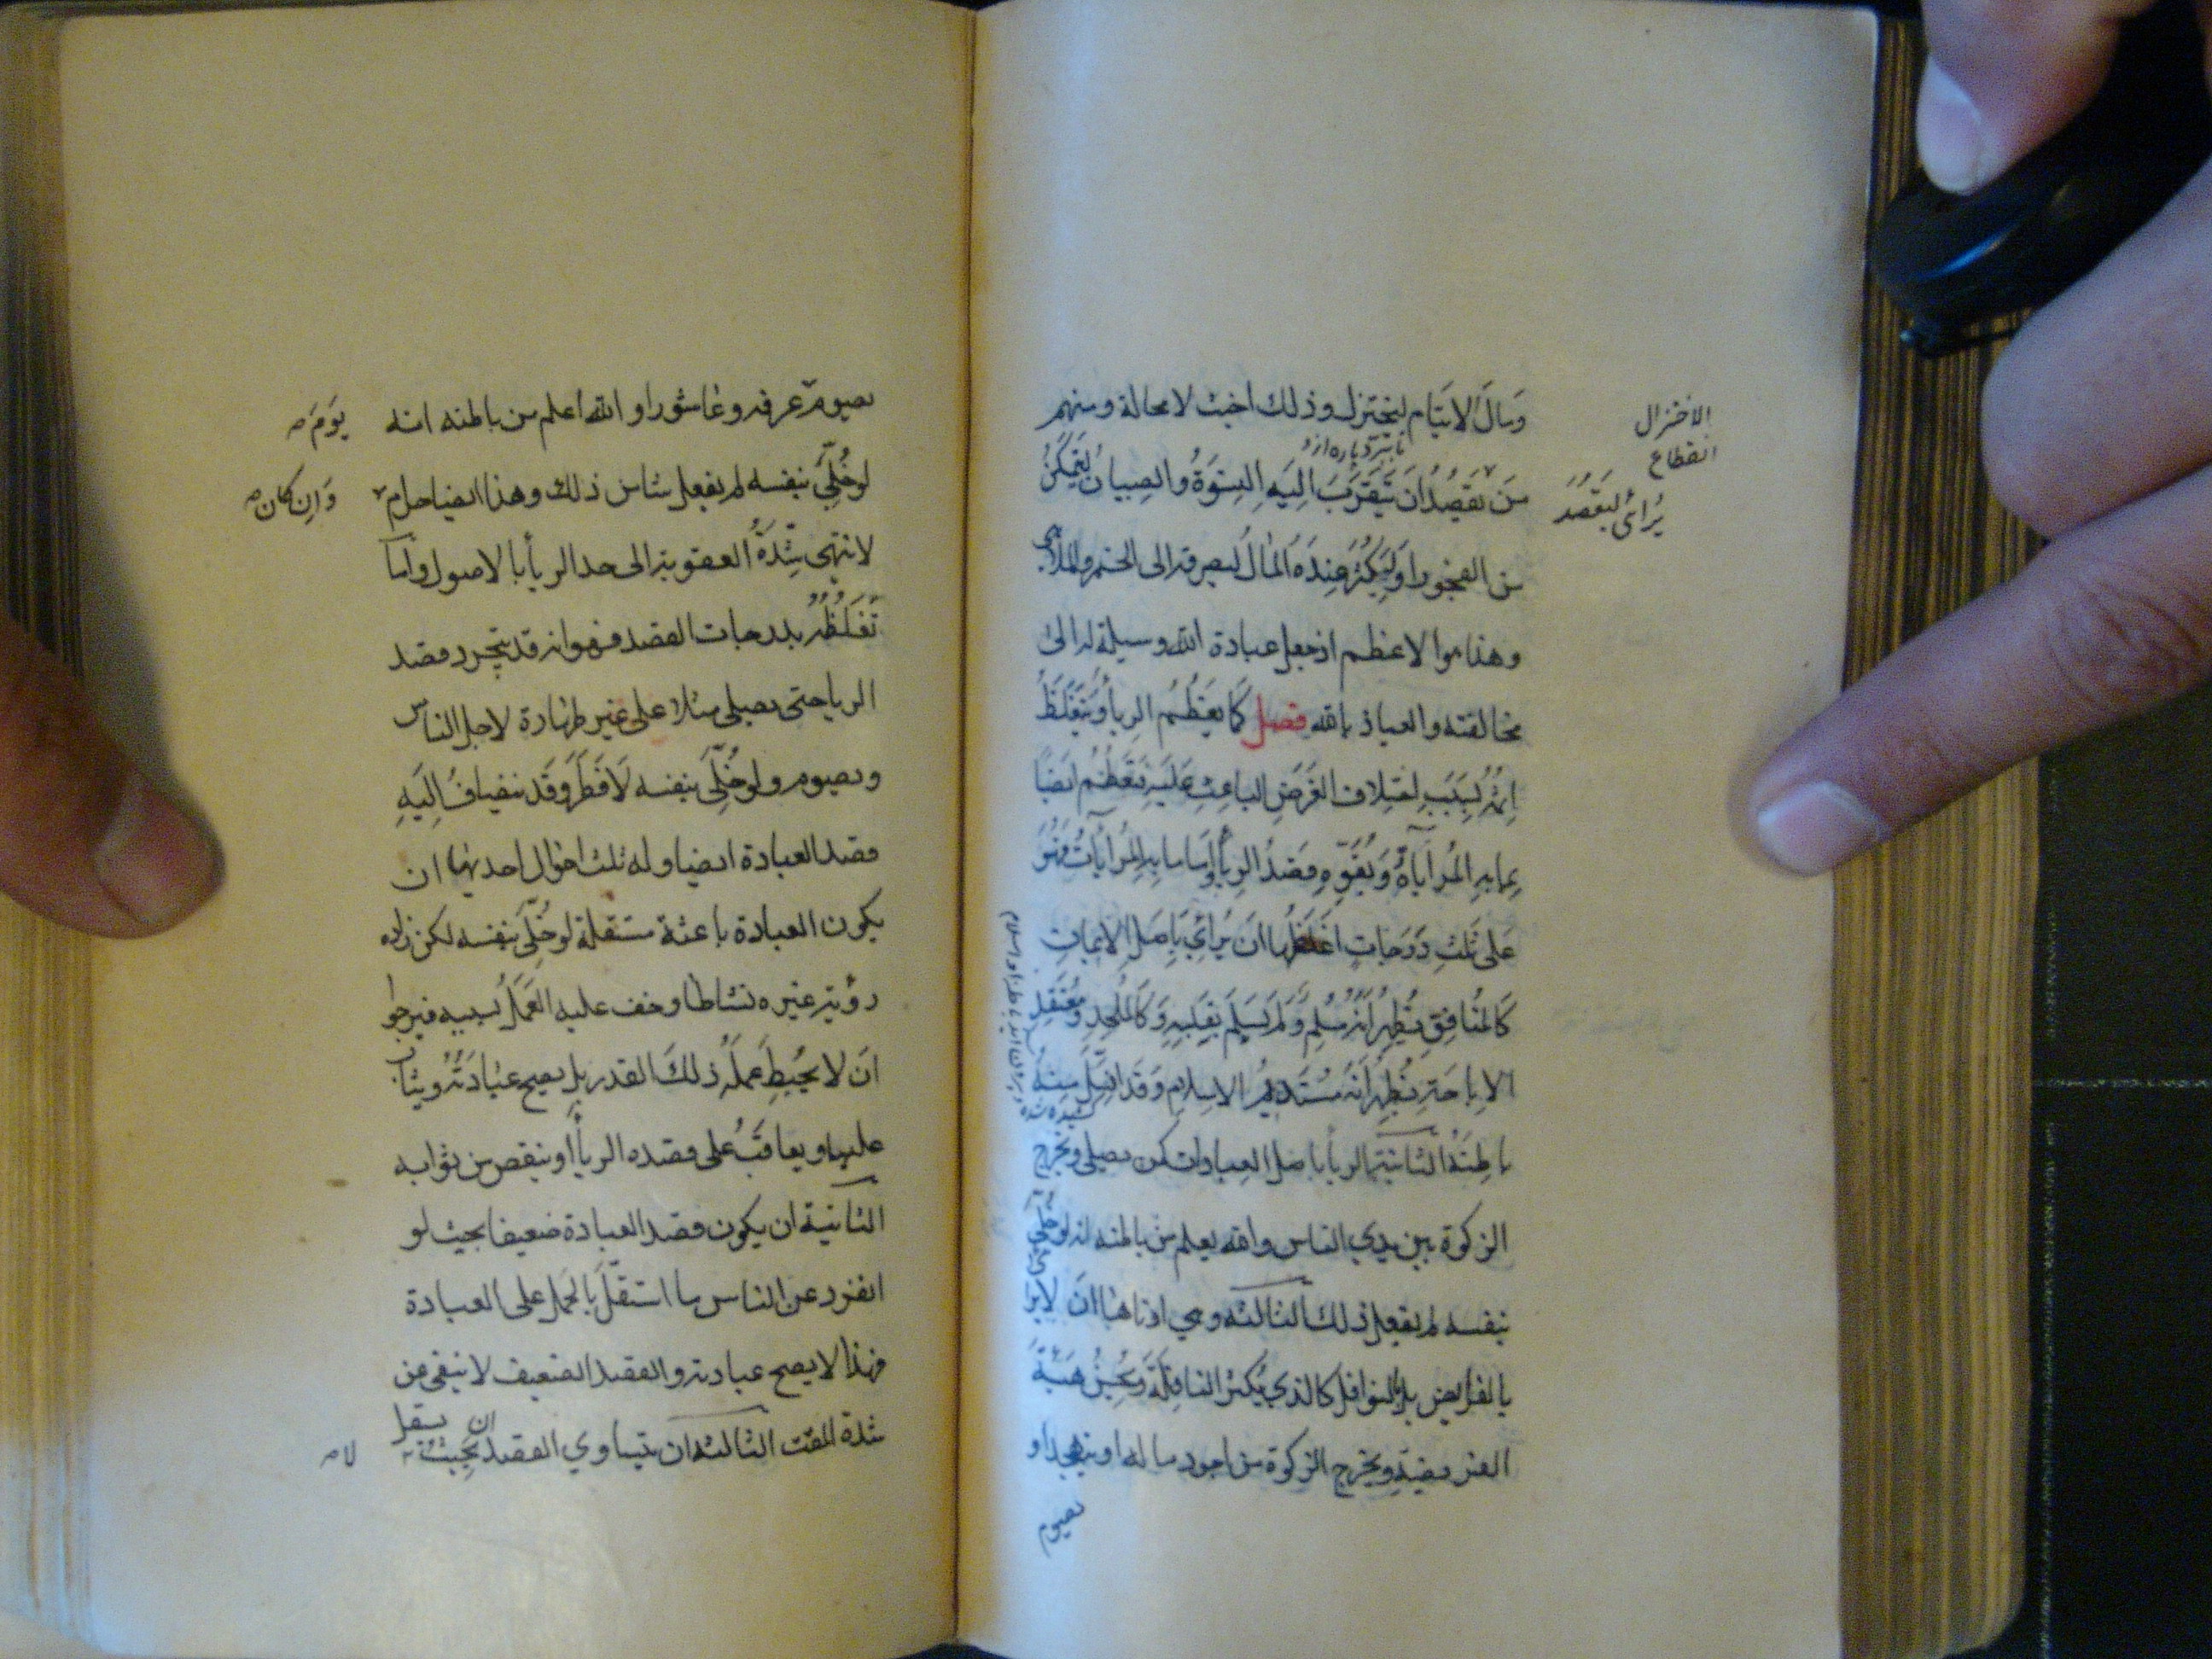 ومال الايتام ليختزل وذلك اخبث لا محالة ومنهم
الاختزال
انقطاع
من يقصد ان يتقرب اليه النسوة والصبيان ليتمكن
يرائى ليقصد
من الفجور او ليكثر عنده المال ليصرفه الى الخمر والملاهي
وهذا هو الاعظم اذ جعل عبادة الله وسيلة له الى
مخالفته والعياذ بالله فصل كما يعظم الرياء ويتغلظ
اثمه بسبب اختلاف الغرض الباعث عليه فتعظم ايضا
بما به المراآة وبقوة قصد الرياء واما ما به المرايات فهو
على ثلث درجات اغلظها ان يرائي باصل الايمان
كالمنافق يظهر انه مسلم ولم يسلم بقلبه وكالملحد ومعتقد
الاباحة يظهر انه مستديم الاسلام وقد انسل منه
كشيده شده
باطنه الثانية الريا باصل العبادات كمن يصلي ويخرج
الزكوة بين يدي الناس والله يعلم من باطنه انه لو خلي
بنفسه لم يفعل ذلك الثالثة وهي ادناها ان لا يرائي
بالفرايض بل بالنوافل كالذي يكثر النافلة ويحسن هيئة
الفريضة ويخرج الزكوة من اجود ماله او يتهجد او
يصوم
يصوم عرفه وعاشورا والله اعلم من باطنه انه
يوم صح
لو خلي بنفسه لم يفعل شيا من ذلك وهذا ايضا حرام
وان كان صح
لا ينتهي شدة العقوبة الى حد الريا بالاصول واما
تغلظه بدرجات القصد فهو انه قد يتجرد قصد
الريا حتى يصلي مثلا على غير طهارة لاجل الناس
ويصوم ولو خلي بنفسه لافطر وقد ينضاف اليه
قصد العبادة ايضا وله ثلث احوال احديها ان
يكون العبادة باعثة مستقلة لو خلي بنفسه لكن زاده
رؤية غيره نشاطا وخف عليه العمل بسببه فيرجوا
ان لا يحبط عمله ذلك القدر بل يصح عبادته ويثاب
عليها ويعاقب على قصده الريا او ينقص من ثوابه
الثانية ان يكون قصد العبادة ضعيفا بحيث لو
انفرد عن الناس ما استقل بالحمل على العبادة
فهذا لا يصح عبادته والقصد الضعيف لا ينفي عن
ان يستقل
شدة المقت الثالثة ان يتساوي القصد بحيث
لا صح